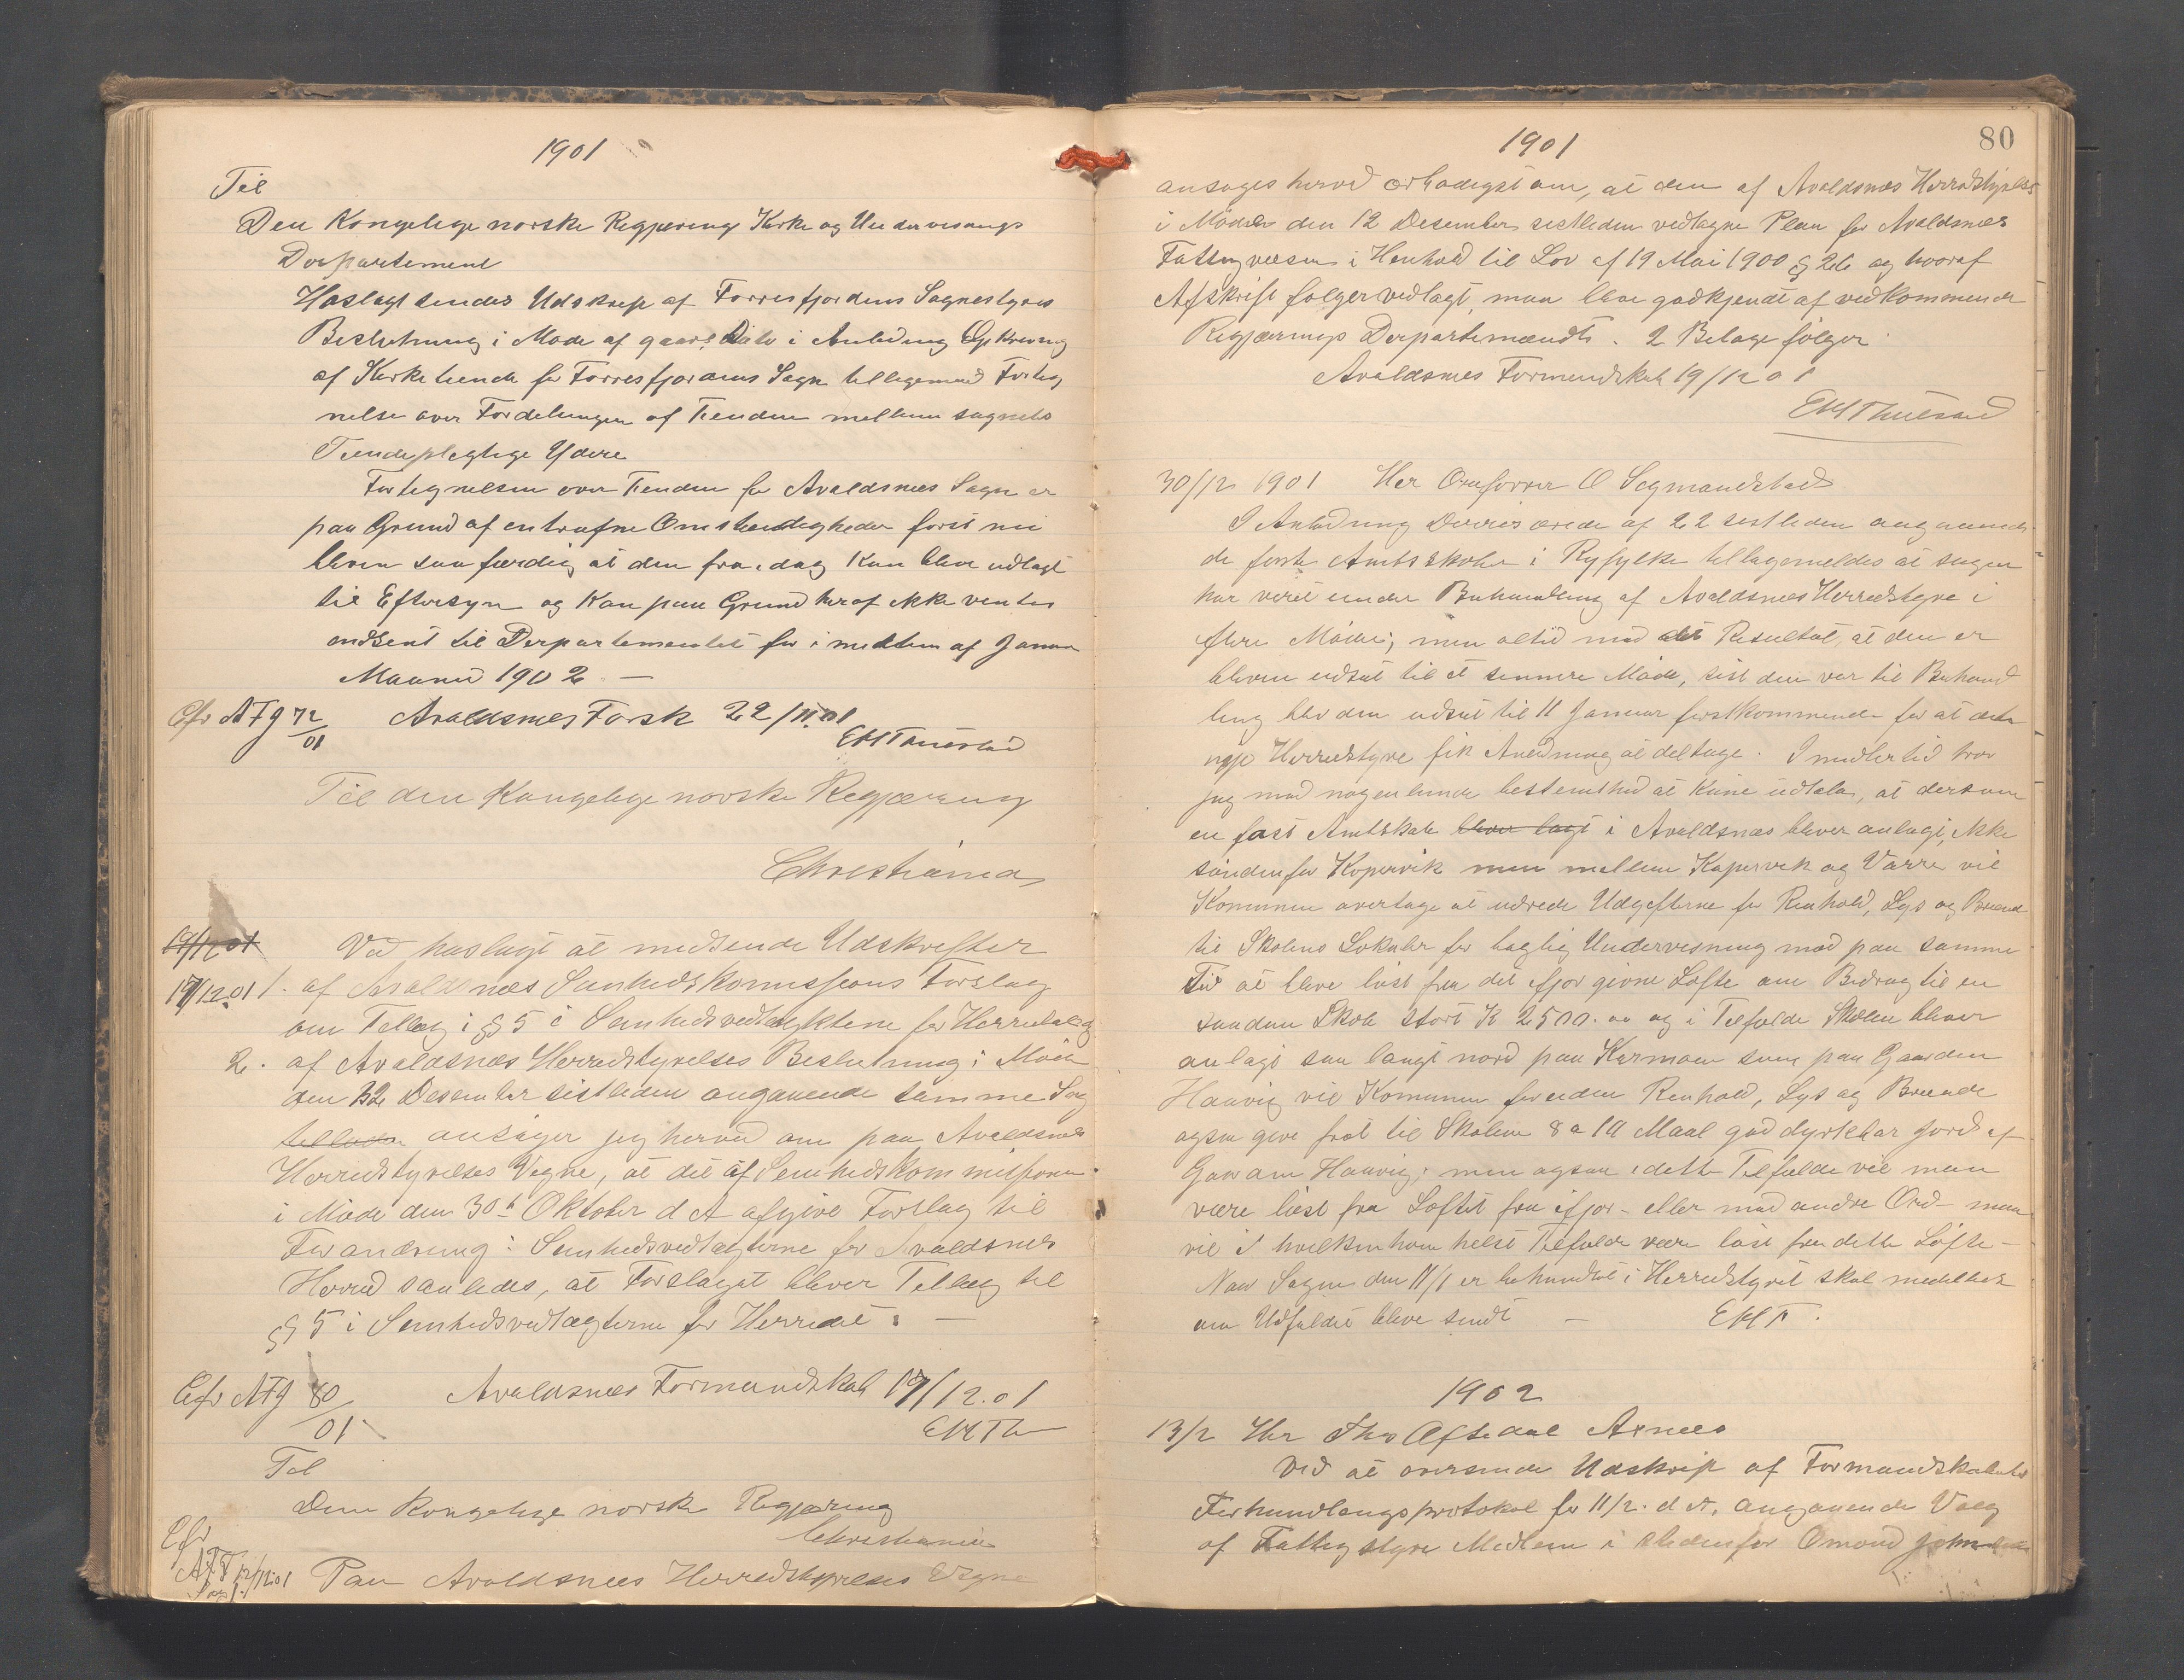 1901
Til
Den Kongelige norske Regjering Kirke og Undervisnings
Departement
Haslagt sendes Udskrift af Førresfjordens Sognestyres
Beslutning i Møde af gaars Dato i Anledning Opkrævng
af Kirketiende for Førresfjordens Sogn tilligemed Forteg
nelse over Fordelingen af Tienden mellem sognets
Tiendepligtige Ydere
Fortegnelsen over Tienden for Avaldsnes Sogn er
paa Grund af entrufne Omstændigheder først nu
bleven saa færdig at den fra idag kan blive udlagt
til Eftersyn og kan paa Grund heraf ikke ventes
indsent til Departementet før i midten af Januar
Maaned 1902 —
Cfr AFg 72/01 Avaldsnes Forsk 22/11.01
EMThuestad
Til den Kongelige norske Regjering
Christiania
19/12 01 Ved haslagt at medsende Udskrifter
17/12.01 1. af Avaldsnes Sunhedskommissions Forslag
om Tillæg i § 5 i Sunhedsvedtægterne for Herredet og
2. af Avaldsnes Herredstyrelses Beslutning i Møde
den 12 Desember sistleden angaaende samme Sag
tillader ansøger jeg herved om paa Avaldsnes
Herredstyrelses Vegne, at det af Sunhedskommissionen
i Møde den 30te Oktober d A afgivne Forslag til
Forandring i Sunhedsvedtægterne for Avaldsnes
Herred saaledes, at Forslaget bliver Tillæg til
§ 5 i Sunhedsvedtægterne for Herredet. —
Cfr AFg 80/01 Avaldsnes Formandskab 17/12.01
EMTh
Til
Den Kongelige norske Regjering
Christiania
Cfr
AFF 12/12.01
Sag 1. Paa Avaldsnes Herredstyrelses Vegne
80
1901
ansøges herved ærbødigst om, at den af Avaldsnes Herredstyrelse
i Møde den 12 Desember sistleden vedtagne Plan for Avaldsnes
Fattigvæsen i Henhold til Lov af 19 Mai 1900 § 2 og hvoraf
Afskrift følger vedlagt, maa blive godkjendt af vedkommende
Regjerings Departement. 2 Bilage følger
Avaldsnes Formendskab 19/12 01
EMThuestad
30/12 1901 Her O Sogmandstad
I Anledning Deres ærede af 22 sistleden angaaende
de faste Amtsskoler i Ryfylke tillagemeldes at sagen
har været under Behandling af Avaldsnes Herredstyre i
flere Møder, men altid med det Resultat, at den er
bleven udsat til et sennere Møde, sist den var til Behand
ling blev den udsat til 11 Januar førstkommende for at det
nye Herredstyre fik Anledning at deltage. Imidlertid tror
jeg med nogenlunde bestemthed at kune udtale, at dersom
en fast Amtskole bliver lagt i Avaldsnes bliver anlagt, ikke
søndenfor Kopervik men mellem Kopervik og Vorre vil
Komunen overtage at udrede Udgifterne for Renhold, Lys og Brænde
til Skolens Lokaler for daglig Undervisning mod paa samme
Tid at blive løst fra det ifjor givne Løfte om Bidrag til en
saadan Skole stort K 2500.00 og i Tilfælde Skolen bliver
anlagt saa langt nord paa Karmøen som paa Gaarden
Haavig vil Komunen foruden Renhold, Lys og Brænde
ogsaa give frit til Skolen 8 a 10 Maal god dyrkbar Jord af
Gaarden Haavig, men ogsaa i dette Tilfælde vil man
være løst fra Løftet fra ifjor – eller med andre Ord – man
vil i hvilkensom helst Tilfælde være løst fra dette Løfte –
Naar Sagen den 11/1 er behandlet i Herredstyret skal meddelelse
om Udfaldet blive sendt — EMT.
1902
13/2 Her Thos Aftedal Arnes
Ved at oversende Udskrift af Formandskabets
Forhandlingsprotokol for 11/2. d A. angaaende Valg
af Fattigstyre Medlem i stedenfor Omond